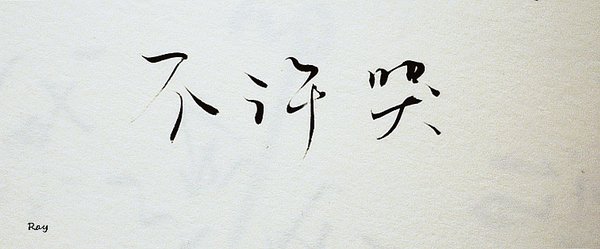 不许哭
Ray